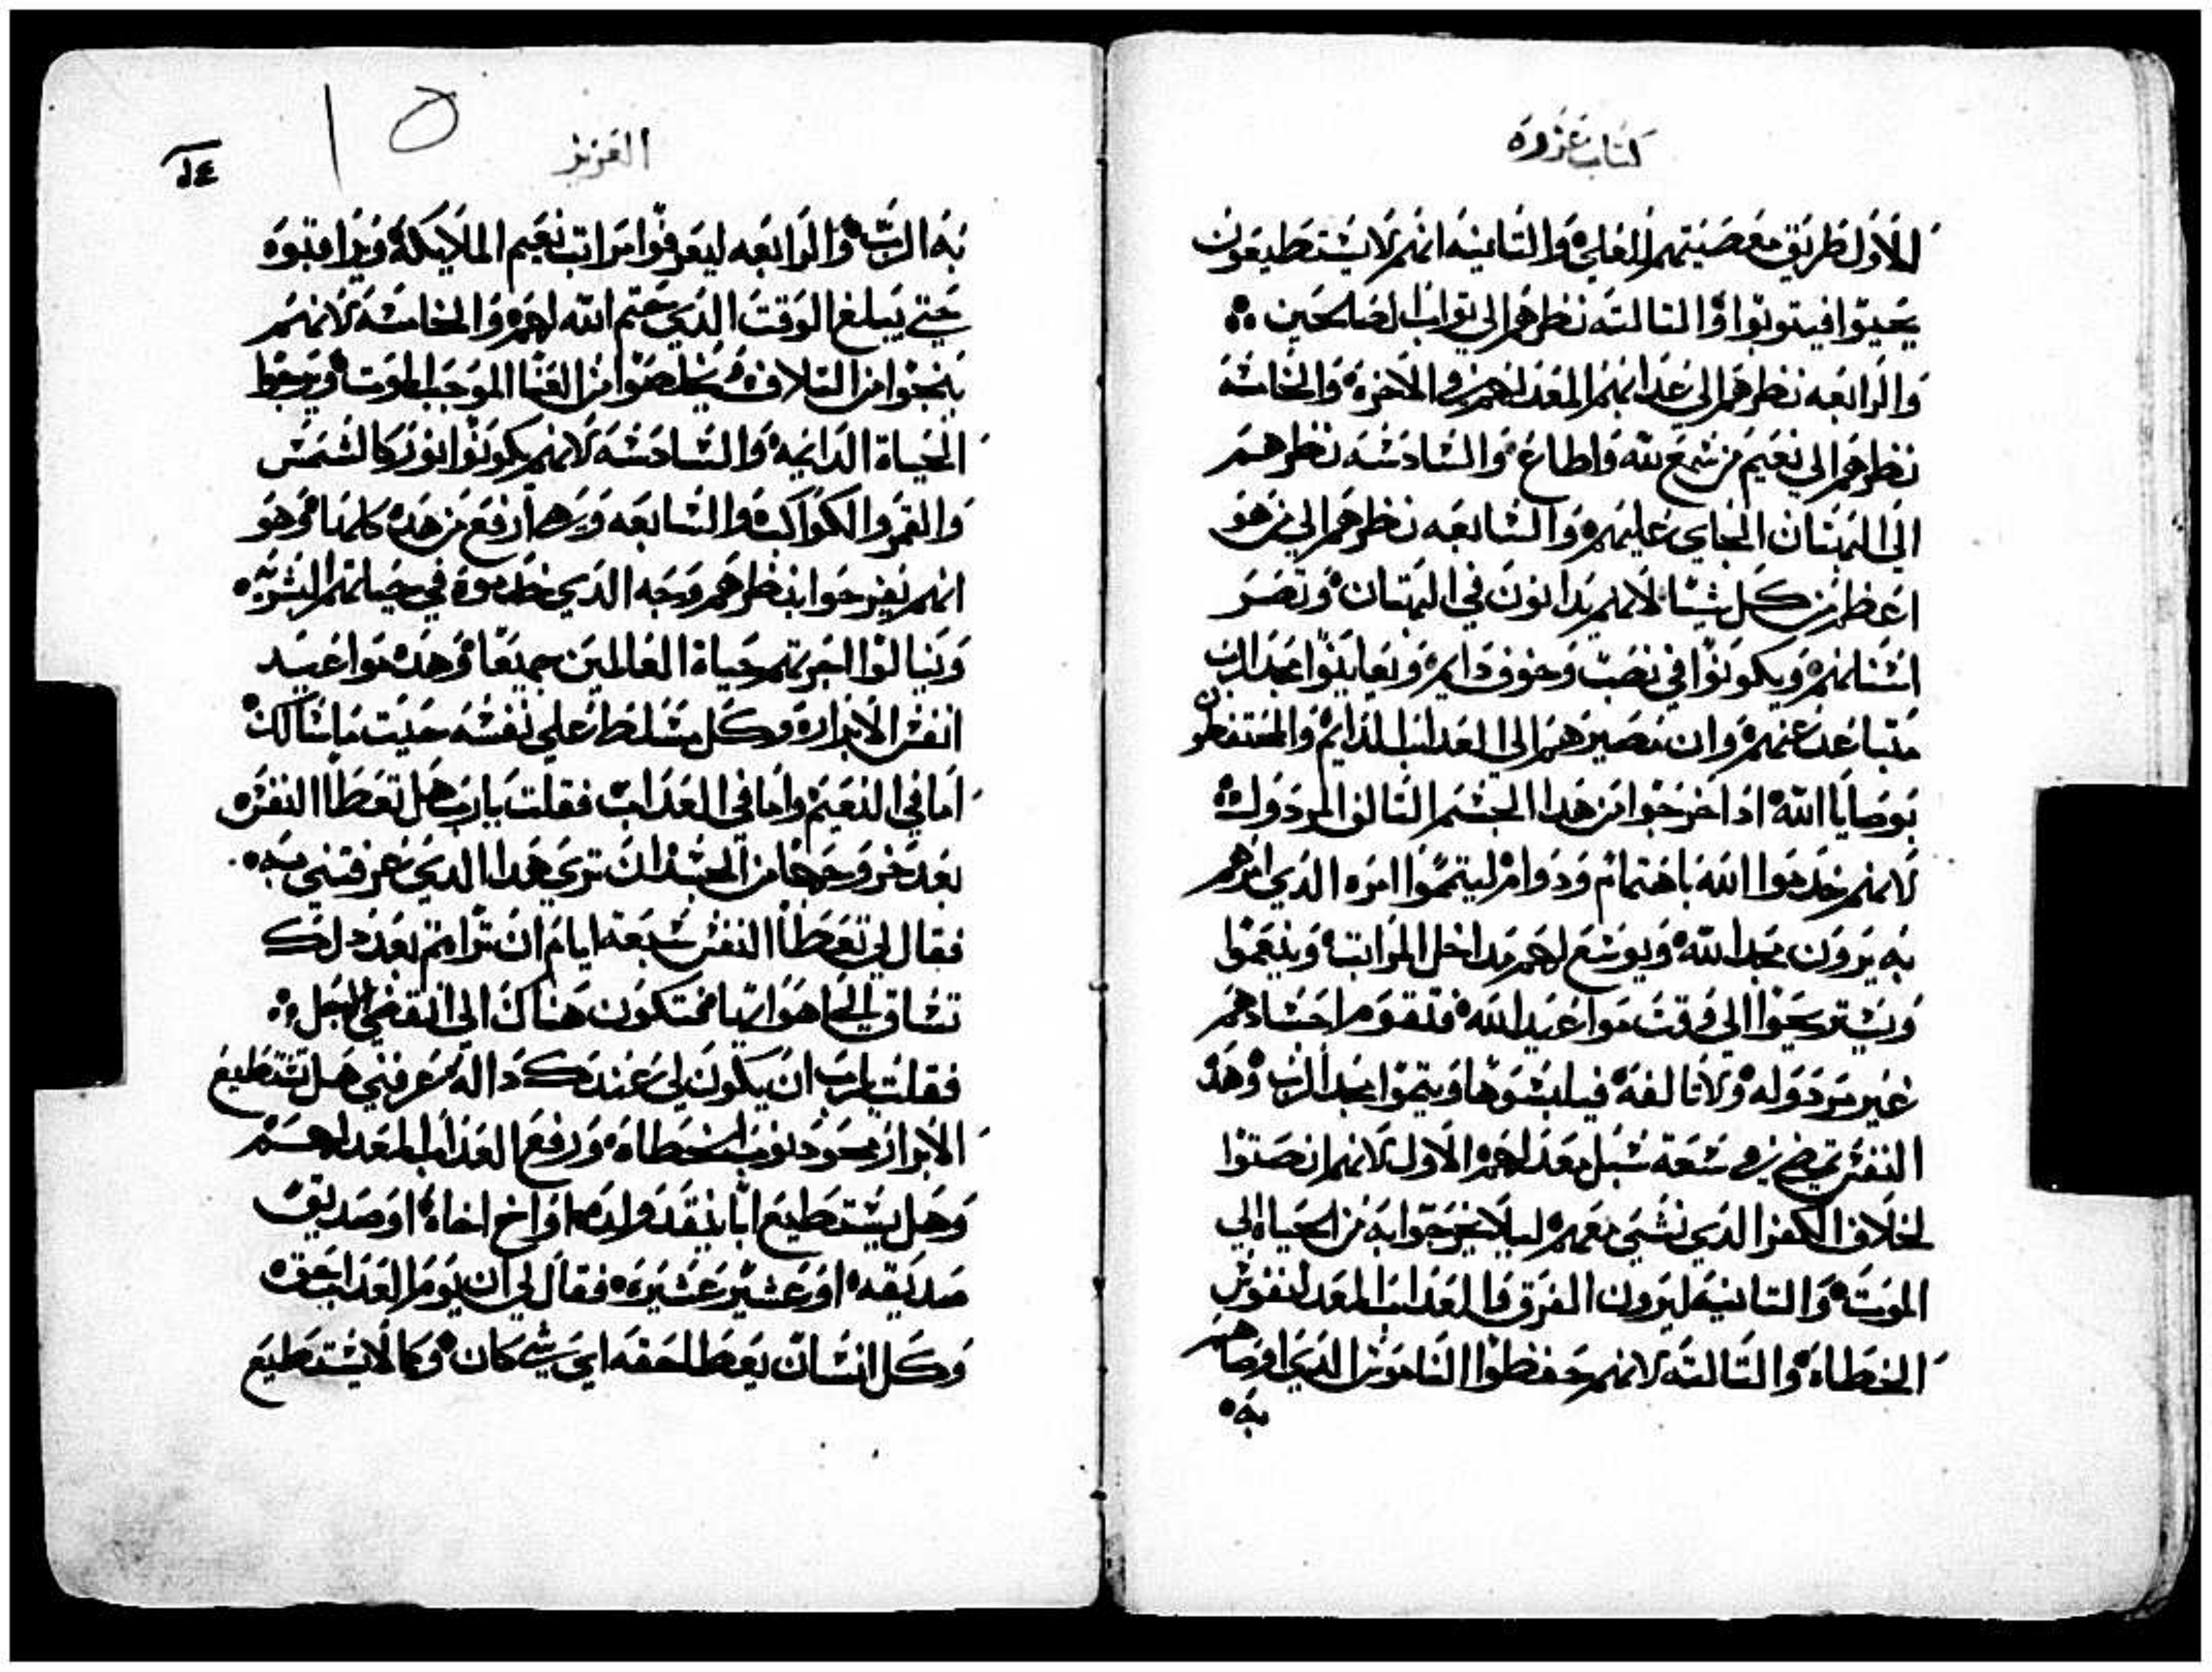 كتاب عزره
الاول طريق معصيتهم للعلي والتانيه انهم لا يستطيعون
يحيوا فيتوبوا والتالته نظرهم الي تواب الصالحين
والرابعه نظرهم الي عدابهم المعد لهم في الاخره والخامسه
نظرهم الي نعيم من سمع لله واطاع والسادسه نظرهم
الي البهتان الجاي عليهم والسابعه نظرهم الي من هو
اعظم من كل شيا لانهم يدانون في البهتان وتصر
اسنانهم ويكونوا في نصب وخوف دايم ويعاينوا مجد الرب
متباعد عنهم وان مصيرهم الي العداب الدايم والمحتفظون
بوصايا الله ادا خرجوا من هدا الجسم التالف المردول
لانهم خدموا الله باهتمام ودوام ليتموا امره الدي امرهم
به يرون مجد الله ويوسع لهم مداخل المراتب وينعموا
ويستريحوا الي وقت مواعيد الله فتقوم اجسادهم
غير مردوله ولا تالفه فيلبسوها ويتموا مجد الرب وهده
النفس تمضي في سبعة سبل معد لهم الاول لانهم انصتوا
لخلاف الكفر الدي نشي معهم ليلا يخرجوا به من الحياه الي
الموت والتانيه ليرون الفرق فالعداب المعد لنفوس
الخطاه والتالته لانهم حفظوا الناموس الدي اوصاهم
به
العزيز
١٤
١٥
به الرب والرابعه ليعرفوا مراتب نعيم الملايكه ويراقبوه
حتي يبلغ الوقت الدي حتم الله لهم والخامسه لانهم
ينجوا من التلاف ويخلصوا من الفنا الموجب الموت ويرجوا
الحياة الدايمه والسادسه لانهم يكونوا نور كالشمس
والقمر والكواكب والسابعه وهي ارفع من هده كلها وهو
انهم يفرحوا بنظرهم وجه الدي خدموه في حياتهم السويه
وينالوا اجرتهم حياة العالمين جميعا وهده مواعيد
انفس الابرار وكل مسلط علي نفسه حيت ما سالك
اما في النعيم واما في العداب فقلت يا رب هل تعطا النفس
بعد خروجها من الجسد ان تري هدا الدي عرفتني به
فقال لي تعطا النفس سبعة ايام ان تراهم بعد دلك
تساق الي اهوايها فتكون هناك الي انقضي الاجل
فقلت يا رب ان يكون لي عندك داله عرفني هل تستطيع
الابرار محو دنوب الخطاه ورفع العداب المعد لهم
وهل يستطيع ابا ينقد ولده او اخ اخاه او صديق
صديقه او عشير عشيره فقال لي ان يوم العداب حق
وكل انسان يعطا حقه اي شي كان وكما لا يستطيع